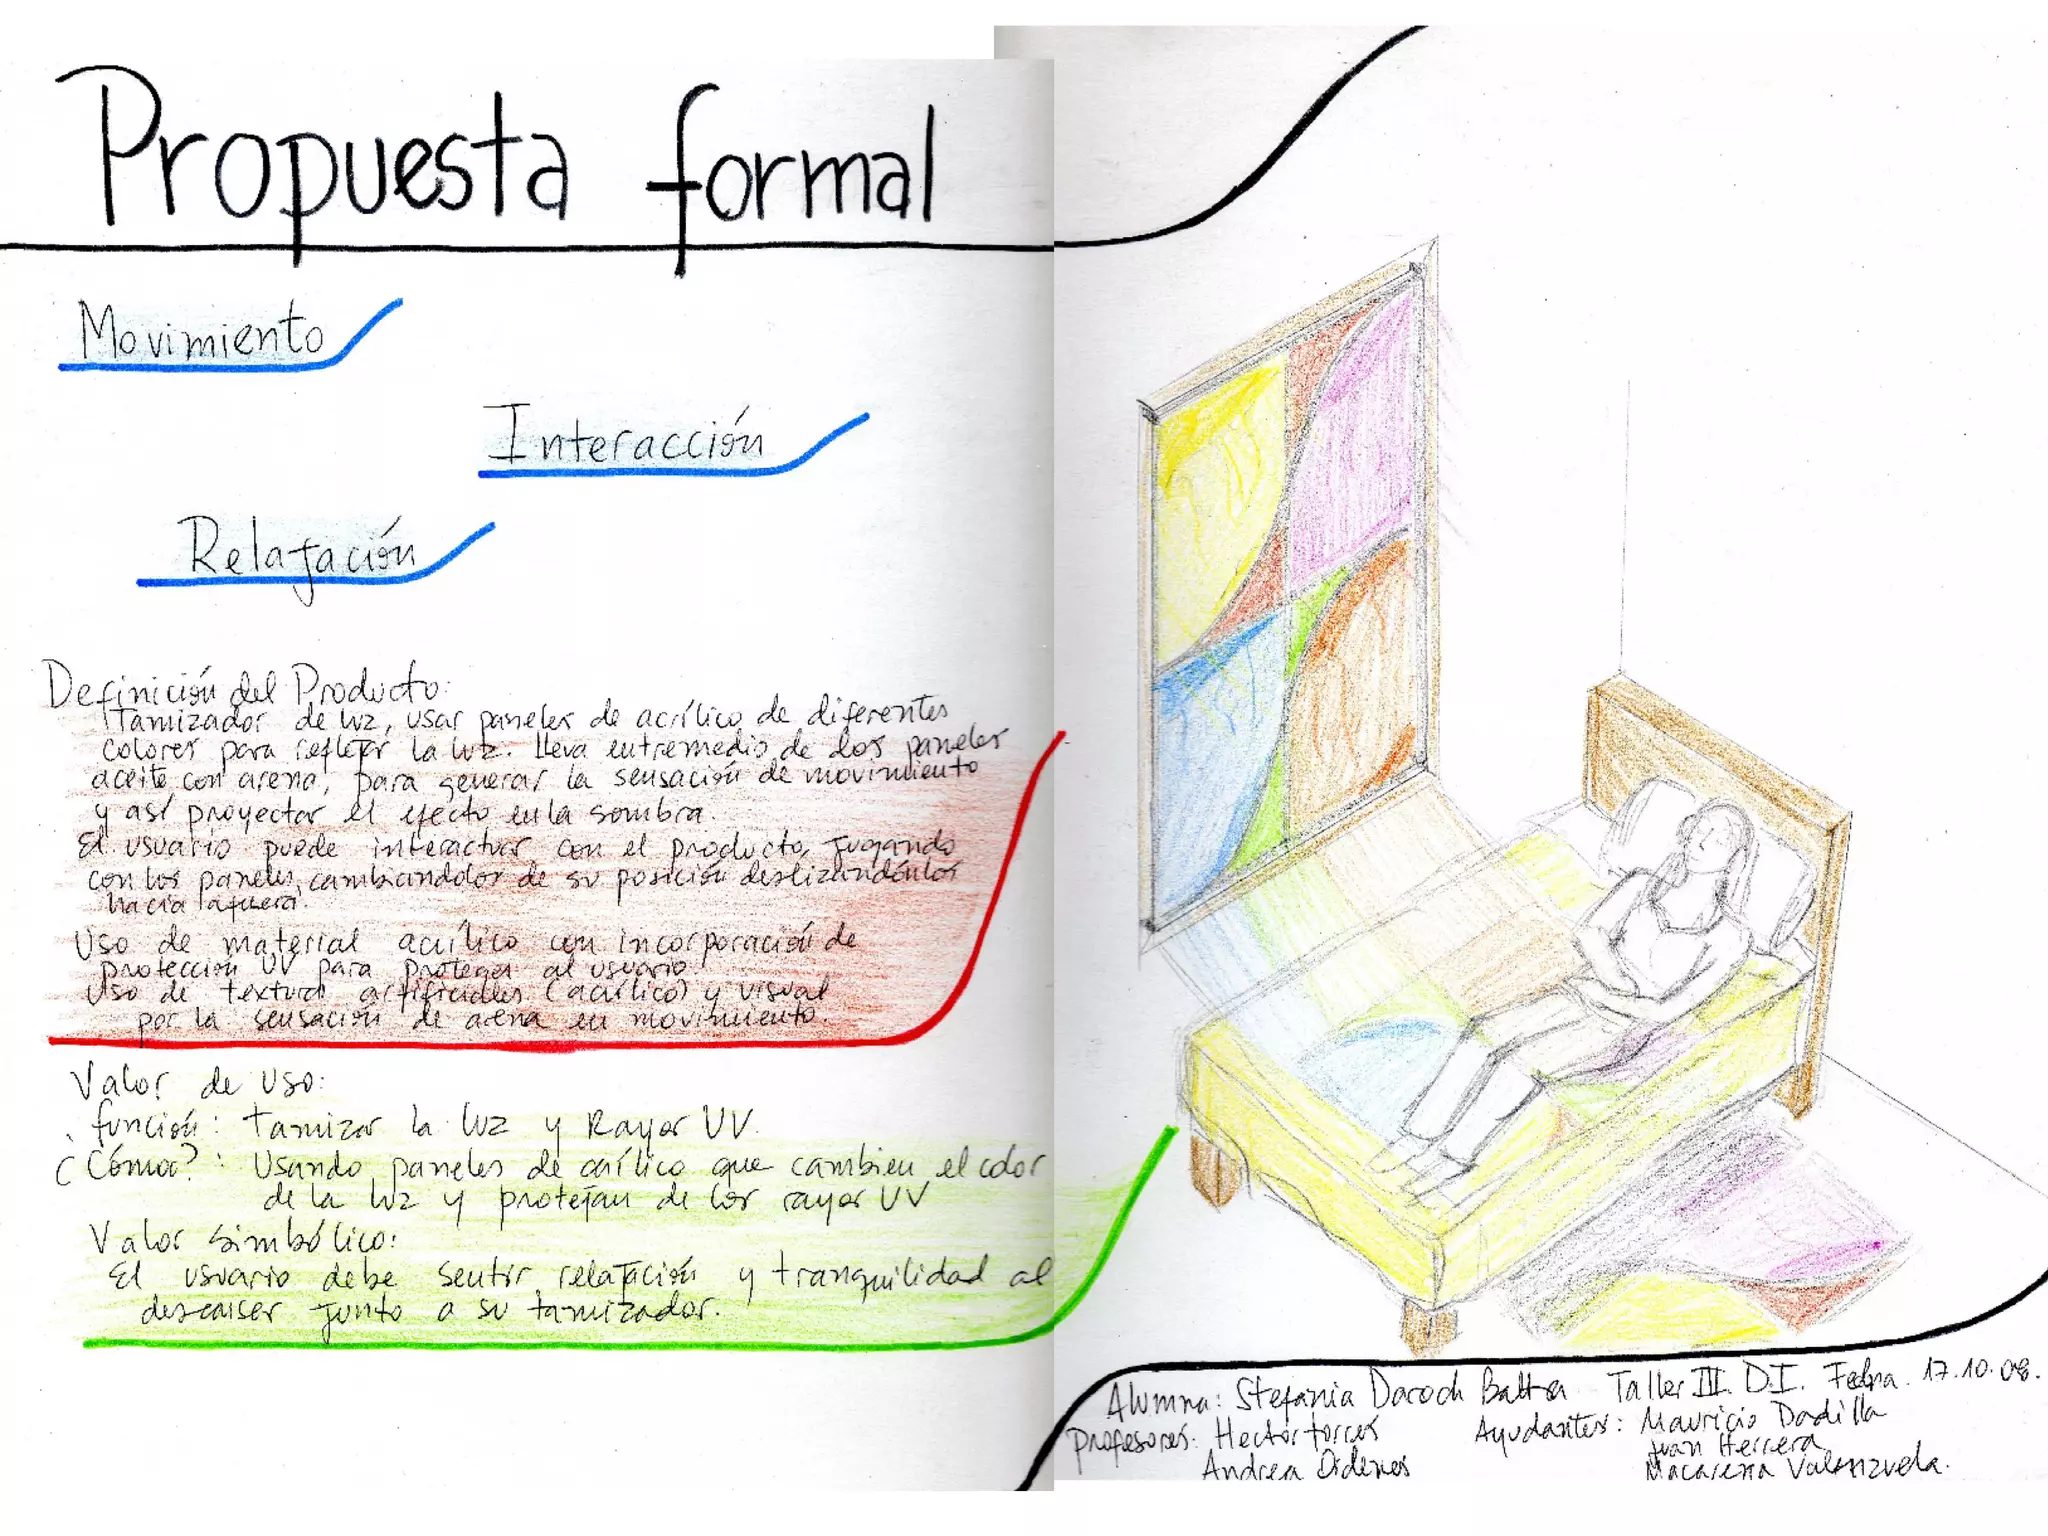 Propuesta formal
Movimiento
Interacción
Relajación
Definición del Producto:
Tamizador de luz, usar paneles de acrílico de diferentes
colores para reflejar la luz. Lleva entremedio de los paneles
aceite con arena, para generar la sensación de movimiento
y así proyectar el efecto en la sombra.
El usuario puede interactuar con el producto, jugando
con los paneles, cambiandolos de su posición deslizandónlos
hacia afuera.
Uso de material acrílico con incorporación de
protección UV para proteger al usuario
Uso de textura artificiales (acrílico) y visual
por la sensación de arena en movimiento.
Valor de uso:
función: Tamizar la luz y Rayos UV.
¿Cómo?: Usando paneles de acrílico que cambien el color
de la luz y protejan de los rayos UV
Valor simbólico:
El usuario debe sentir relajación y tranquilidad al
descanser junto a su tamizador.
Alumna: Stefania Daroch Taller III. D.I. Fecha. 17.10.08.
Profesores: Hector torres Ayudantes: Mauricio Dadilla
Andrea Ordenes Juan Herrera
Macarena Valenzuela.